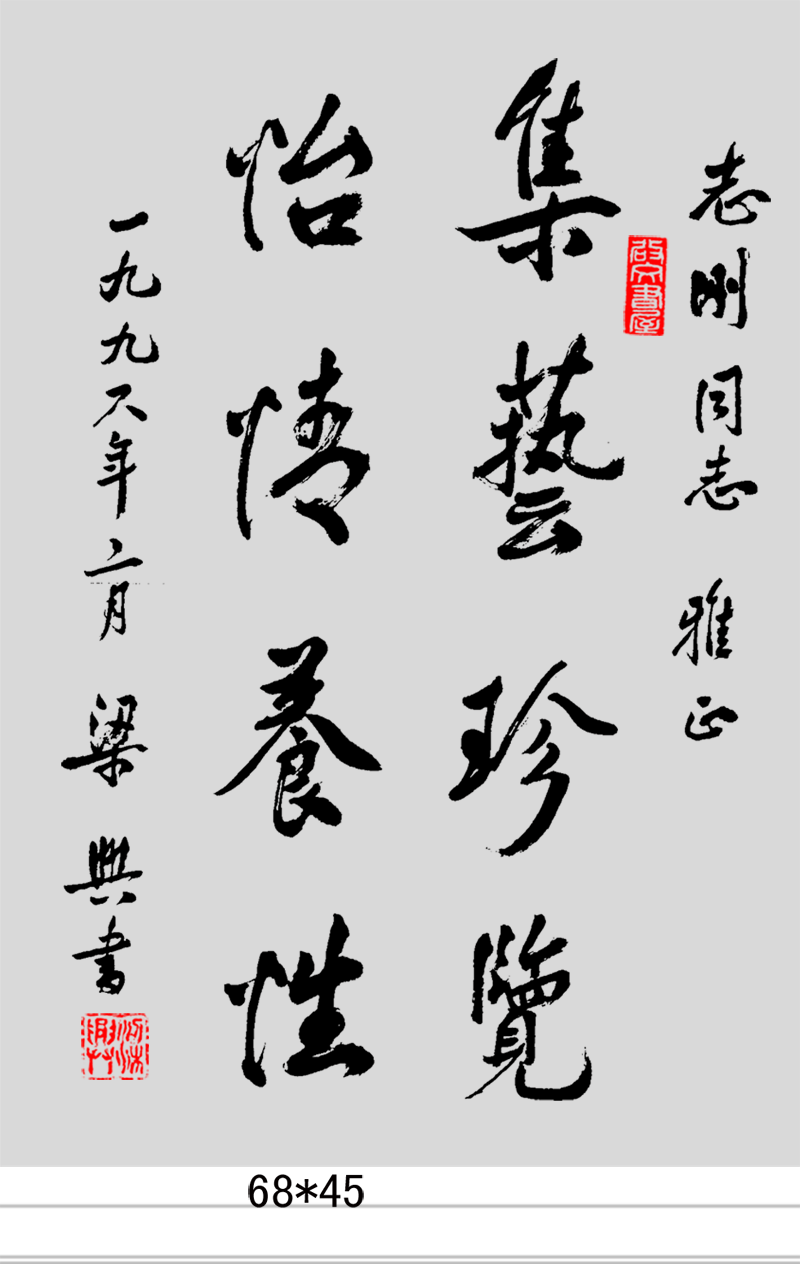 志刚同志 雅正
集藝珍覽
怡情養性
一九九八年二月 梁興書
68*45